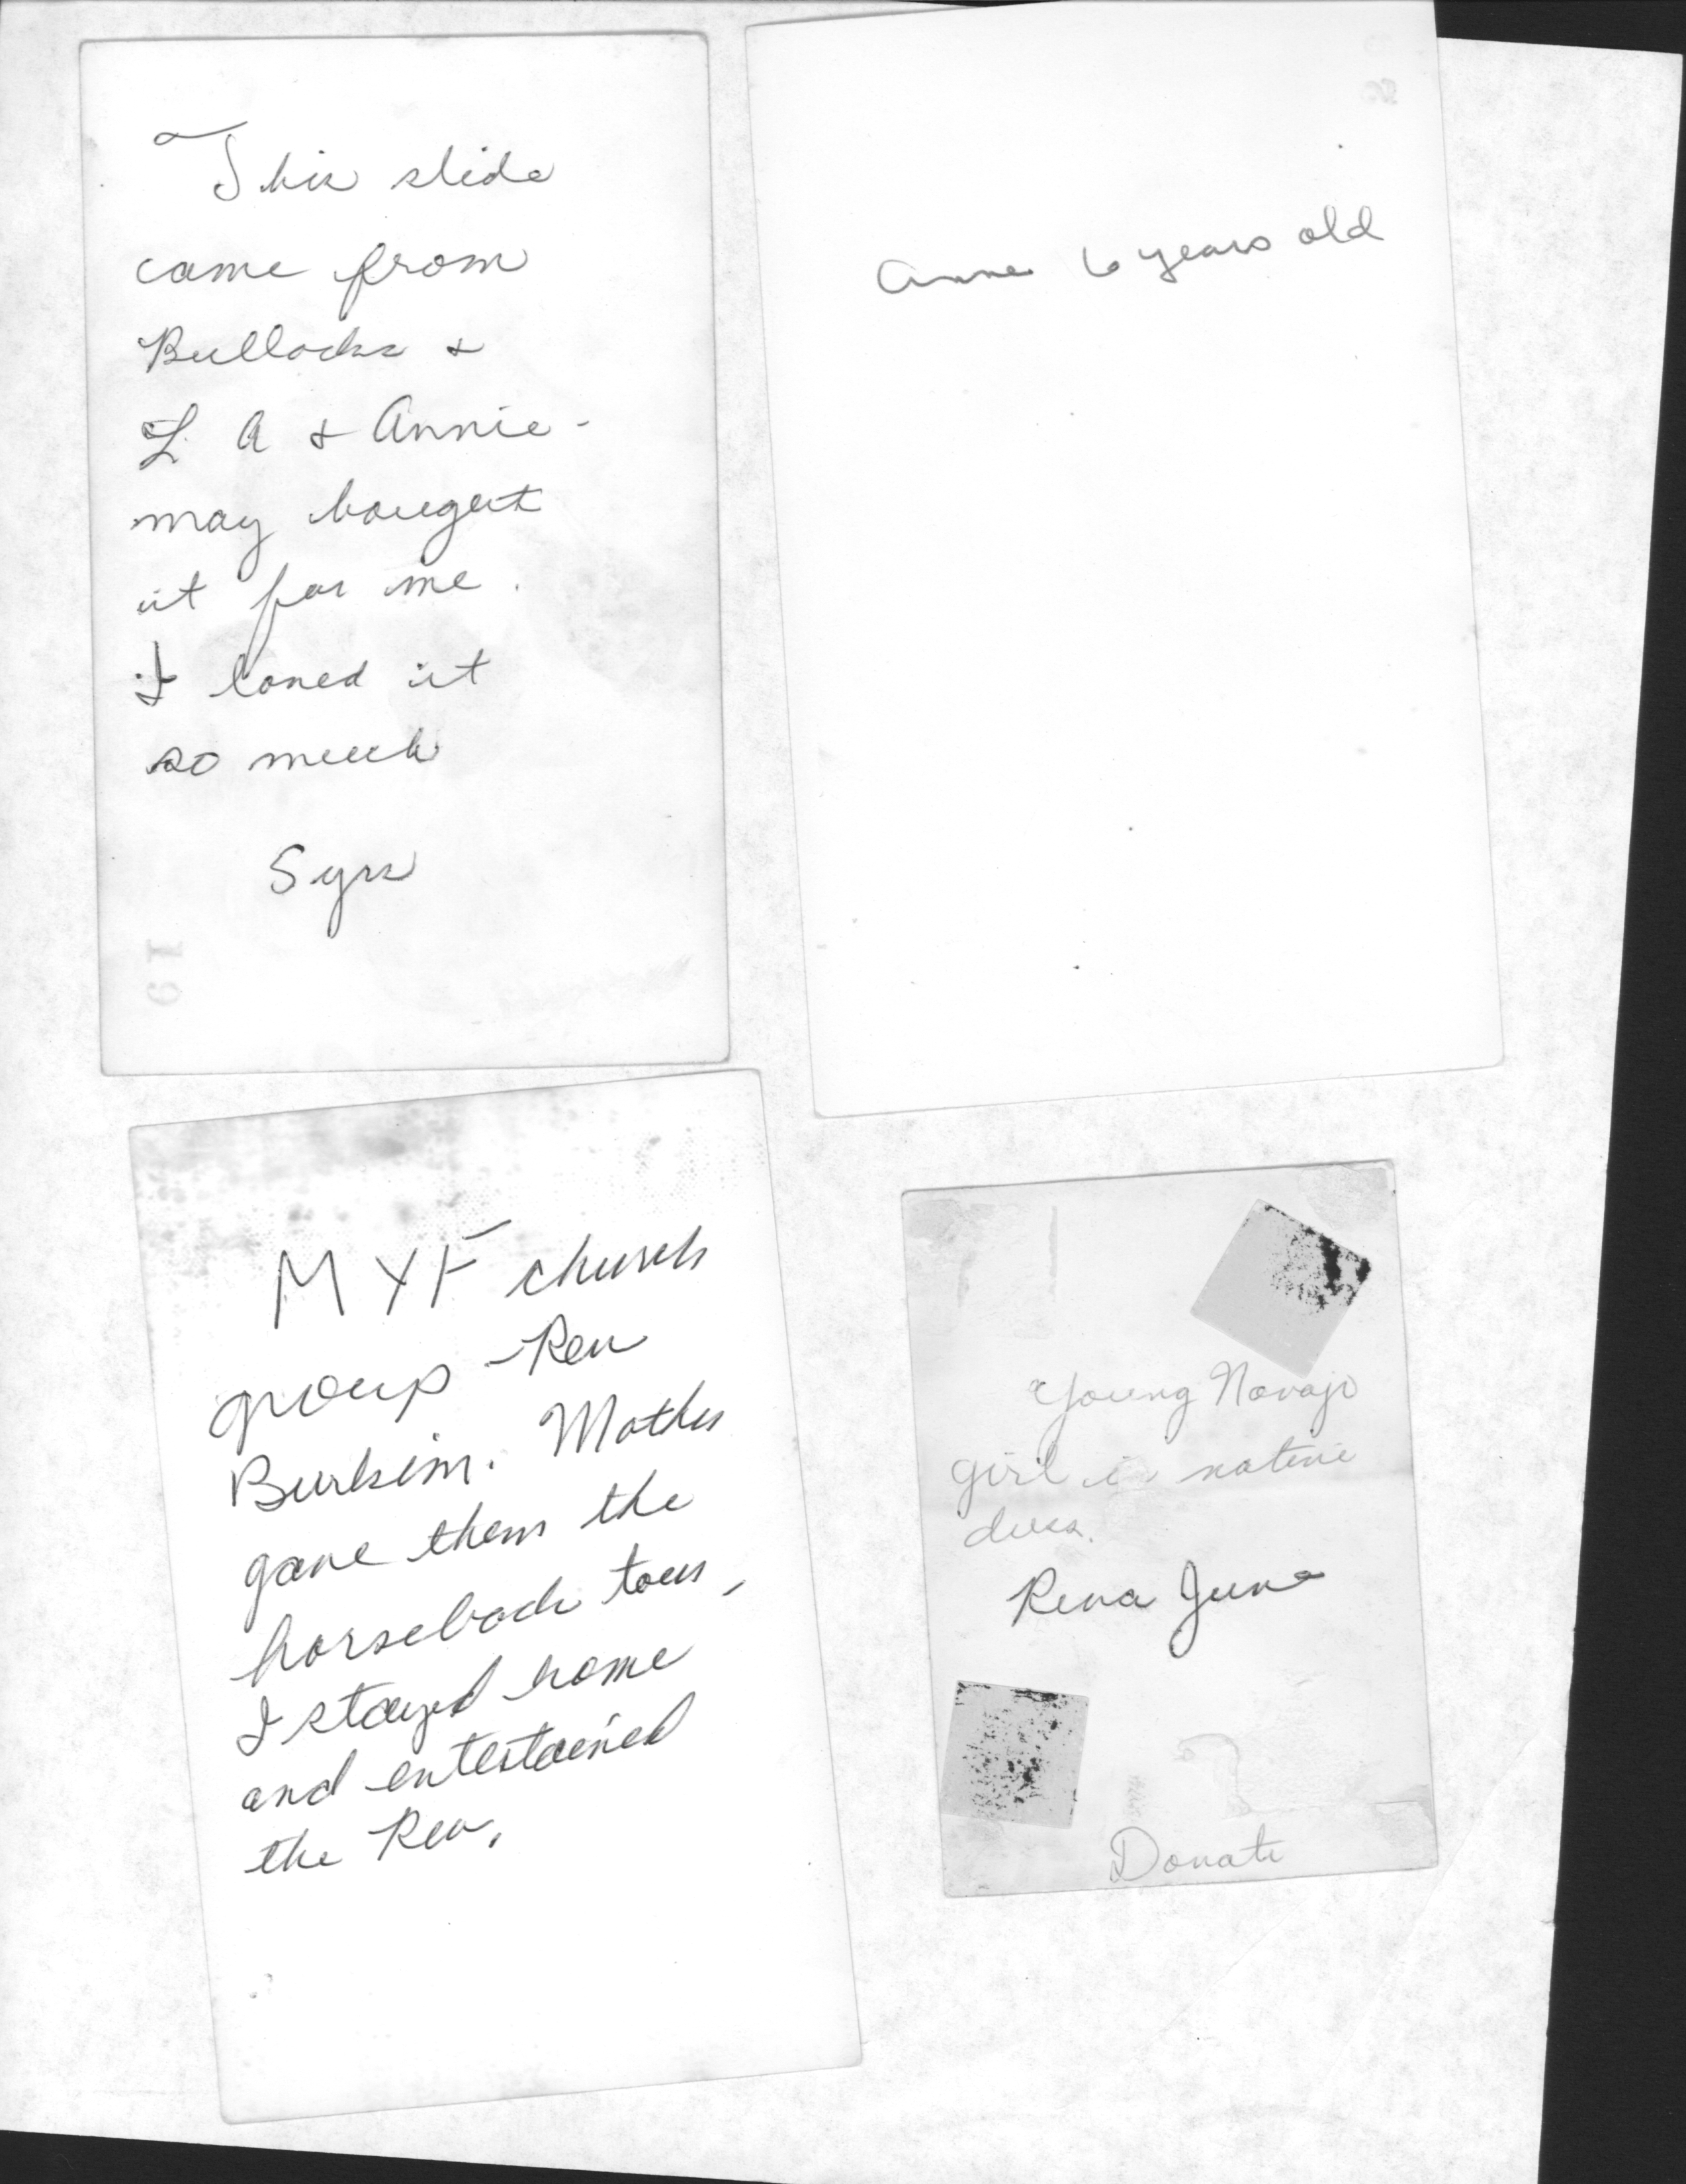 This slide
came from
Bullocks &
L A & Annie-
may bought
it for me.
I loved it
so much
5 yrs
19
Anne 6 years old
MYF church
group - Rev
Burkim. Mother
gave them the
horseback tour,
I stayed home
and entertained
the Rev.
Young Navajo
girl in native
dress.
Rena June
Donate